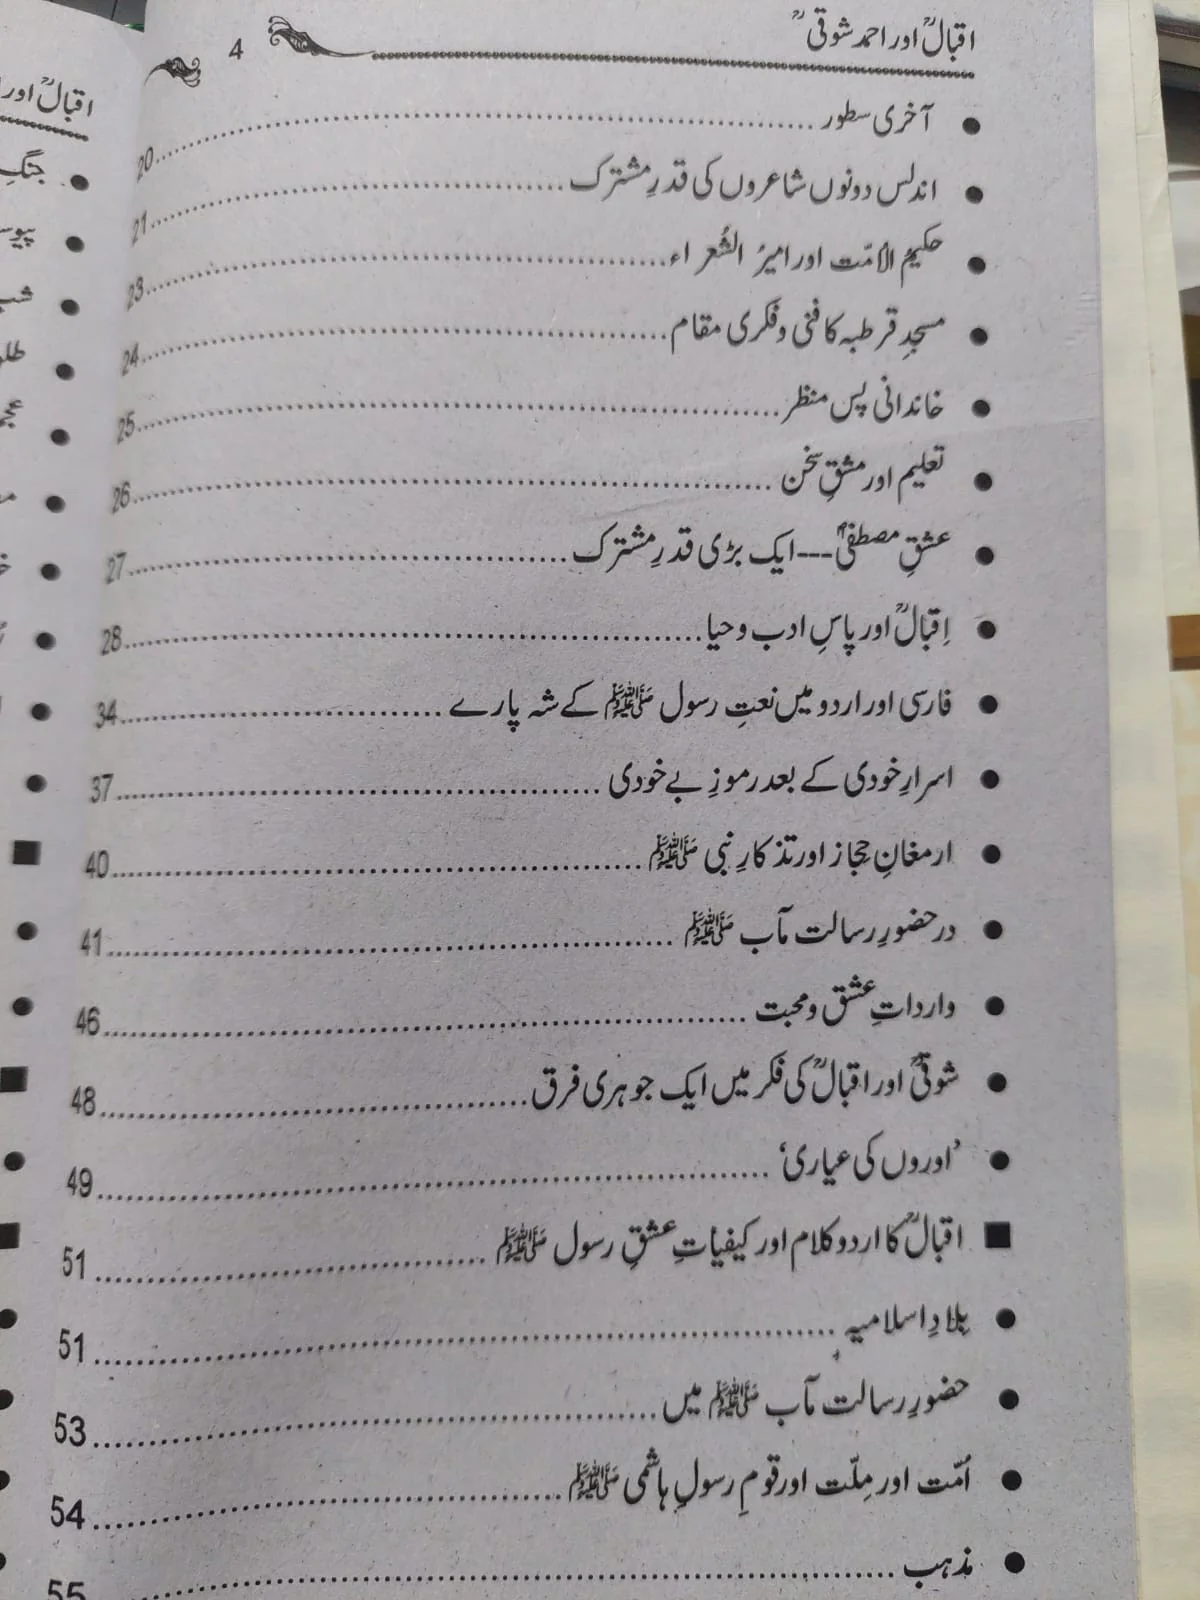 اقبالؒ اور احمد شوقیؒ
4
آخری سطور 20
اندلس دونوں شاعروں کی قدرِ مشترک 21
حکیمُ الاُمّت اور امیرُ الشُعراء 23
مسجدِ قرطبہ کا فنی و فکری مقام 24
خاندانی پس منظر 25
تعلیم اور مشقِ سخن 26
عشقِ مصطفیٰؐ---ایک بڑی قدرِ مشترک 27
اِقبالؒ اور پاسِ ادب و حیا 28
فارسی اور اردو میں نعتِ رسول ﷺ کے شہ پارے 34
اسرارِ خودی کے بعد رموزِ بے خودی 37
ارمغانِ حجاز اور تذکارِ نبی ﷺ 40
در حضورِ رسالت مآب ﷺ 41
وارداتِ عشق و محبت 46
شوقیؒ اور اقبالؒ کی فکر میں ایک جوہری فرق 48
’اوروں کی عیاری‘ 49
اقبالؒ کا اردو کلام اور کیفیاتِ عشقِ رسول ﷺ 51
بلادِ اسلامیہ 51
حضورِ رسالت مآب ﷺ میں 53
اُمّت اور مِلّت اور قومِ رسولِ ہاشمی ﷺ 54
مذہب 55
اقبالؒ اور
جنگِ